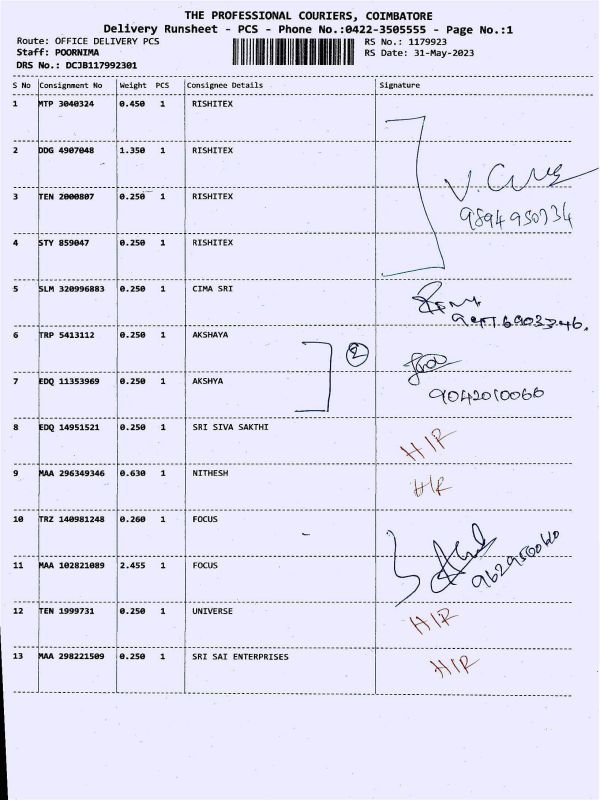 THE PROFESSIONAL COURIERS, COIMBATORE
Delivery Runsheet - PCS - Phone No.:0422-3505555 - Page No.:1
Route: OFFICE DELIVERY PCS RS No.: 1179923
Staff: POORNIMA RS Date: 31-May-2023
DRS No.: DCJB117992301
S No Consignment No Weight PCS Consignee Details Signature
1 MTP 3040324 0.450 1 RISHITEX
2 DDG 4907048 1.350 1 RISHITEX
3 TEN 2000807 0.250 1 RISHITEX
9894950734
4 STY 859047 0.250 1 RISHITEX
5 SLM 320996883 0.250 1 CIMA SRI
6 TRP 5413112 0.250 1 AKSHAYA
2
7 EDQ 11353969 0.250 1 AKSHYA
9042010066
8 EDQ 14951521 0.250 1 SRI SIVA SAKTHI HIR
9 MAA 296349346 0.630 1 NITHESH HIR
10 TRZ 140981248 0.260 1 FOCUS
11 MAA 102821089 2.455 1 FOCUS
12 TEN 1999731 0.250 1 UNIVERSE HIR
13 MAA 298221509 0.250 1 SRI SAI ENTERPRISES HIR